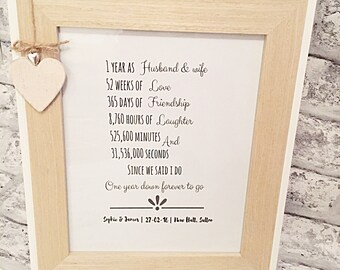 1 YEAR AS Husband & wife
52 WEEKS OF Love
365 DAYS OF Friendship
8,760 HOURS OF Laughter
525,600 MINUTES And
31,536,000 SECONDS
SINCE WE SAID I DO
One year down forever to go
Sophie & James | 27-02-16 | New Hall, Sutton